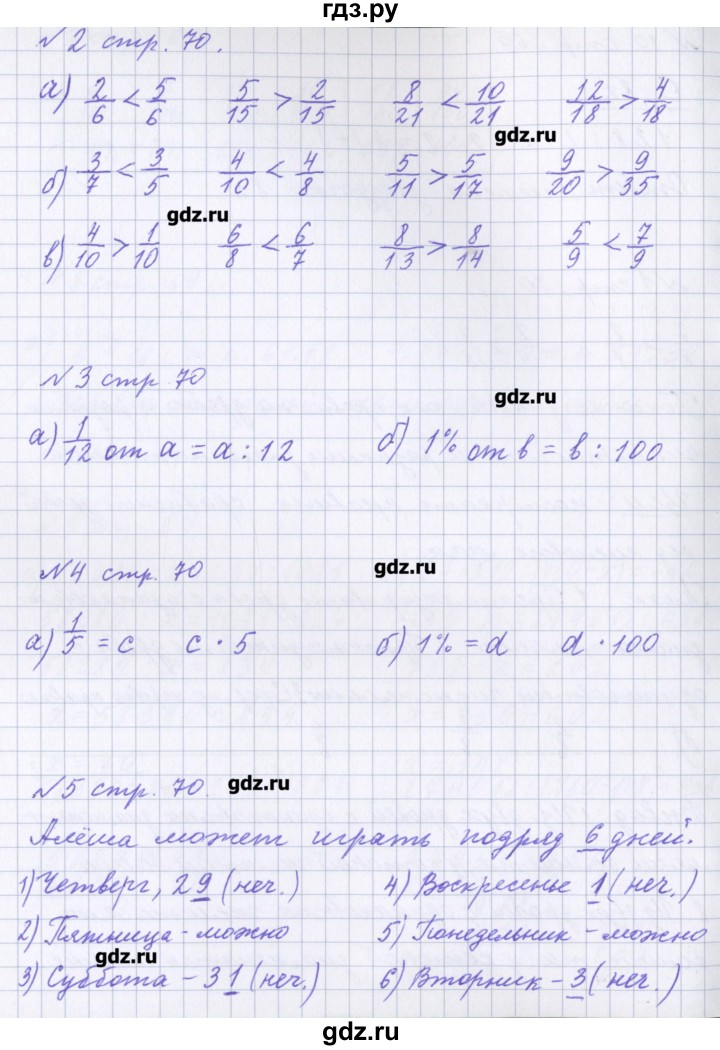 гдз.ру
№2 стр. 70.
а) 2/6 < 5/6   5/15 > 2/15   8/21 < 10/21   12/18 > 4/18
gdz.ru
б) 3/7 < 3/5   4/10 < 4/8   5/11 > 5/17   9/20 > 9/35
gdz.ru
в) 4/10 > 1/10   6/8 < 6/7   8/13 > 8/14   5/9 < 7/9
№3 стр 70
gdz.ru
а) 1/12 от a = a : 12   б) 1% от в = в : 100
№4 стр. 70
gdz.ru
а) 1/5 = c   c · 5   б) 1% = d   d · 100
№5 стр. 70.
gdz.ru
Алёша может играть подряд 6 дней.
1) Четверг, 29 (неч.)   4) Воскресенье 1 (неч.)
2) Пятница - можно   5) Понедельник - можно
gdz.ru
3) Суббота - 31 (неч.)   6) Вторник - 3 (неч.)
gdz.ru